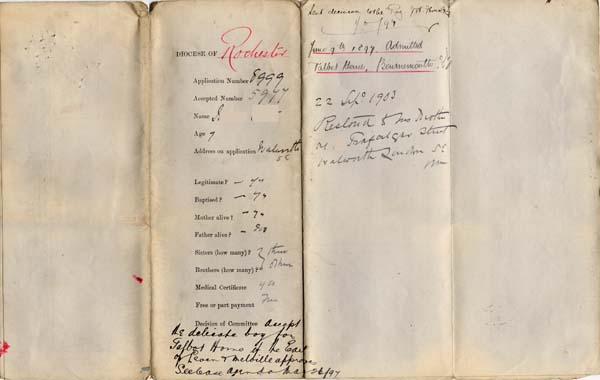 DIOCESE OF Rochester
Application Number 8999
Accepted Number 5977
Name J.
Age 7
Address on application Walworth
S E
Legitimate? - Yes
Baptised? - Yes
Mother alive? - Yes
Father alive? -
Sisters (how many)? three
Brothers (how many)? other
Medical Certificate yes
Free or part payment Free
Decision of Committee accept
as delicate boy for
Talbot Home if the Earl
of Leven & Melville approves
See case agenda Mar 26/97
Sent decision to the
June 9th 1897. Admitted
Talbot House, Bournemouth
22 Sep 1903
Restored to his Mother
Trafalgar Street
Walworth London S E